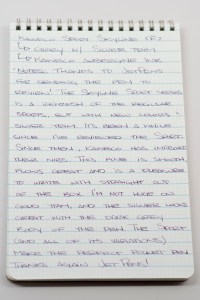 Kaweco Sport Skyline (F)
↳ Grey w/ Silver Trim
↳ Kaweco
Notes: Thanks to JetPens
for sending this pen to
review! The Skyline Sport series
is a variation of the regular
Sports, but with new colors +
silver trim. It's been a while
since I've reviewed the Sport.
Since then, Kaweco has improved
their nibs. This nib is smooth,
flows great and is a pleasure
to write with straight out
of the box. I'm not huge on
gold trim, and the silver looks
great with the dark grey
body of the pen. The Sport
(and all of its variations)
make the perfect pocket pen.
Thanks again JetPens!